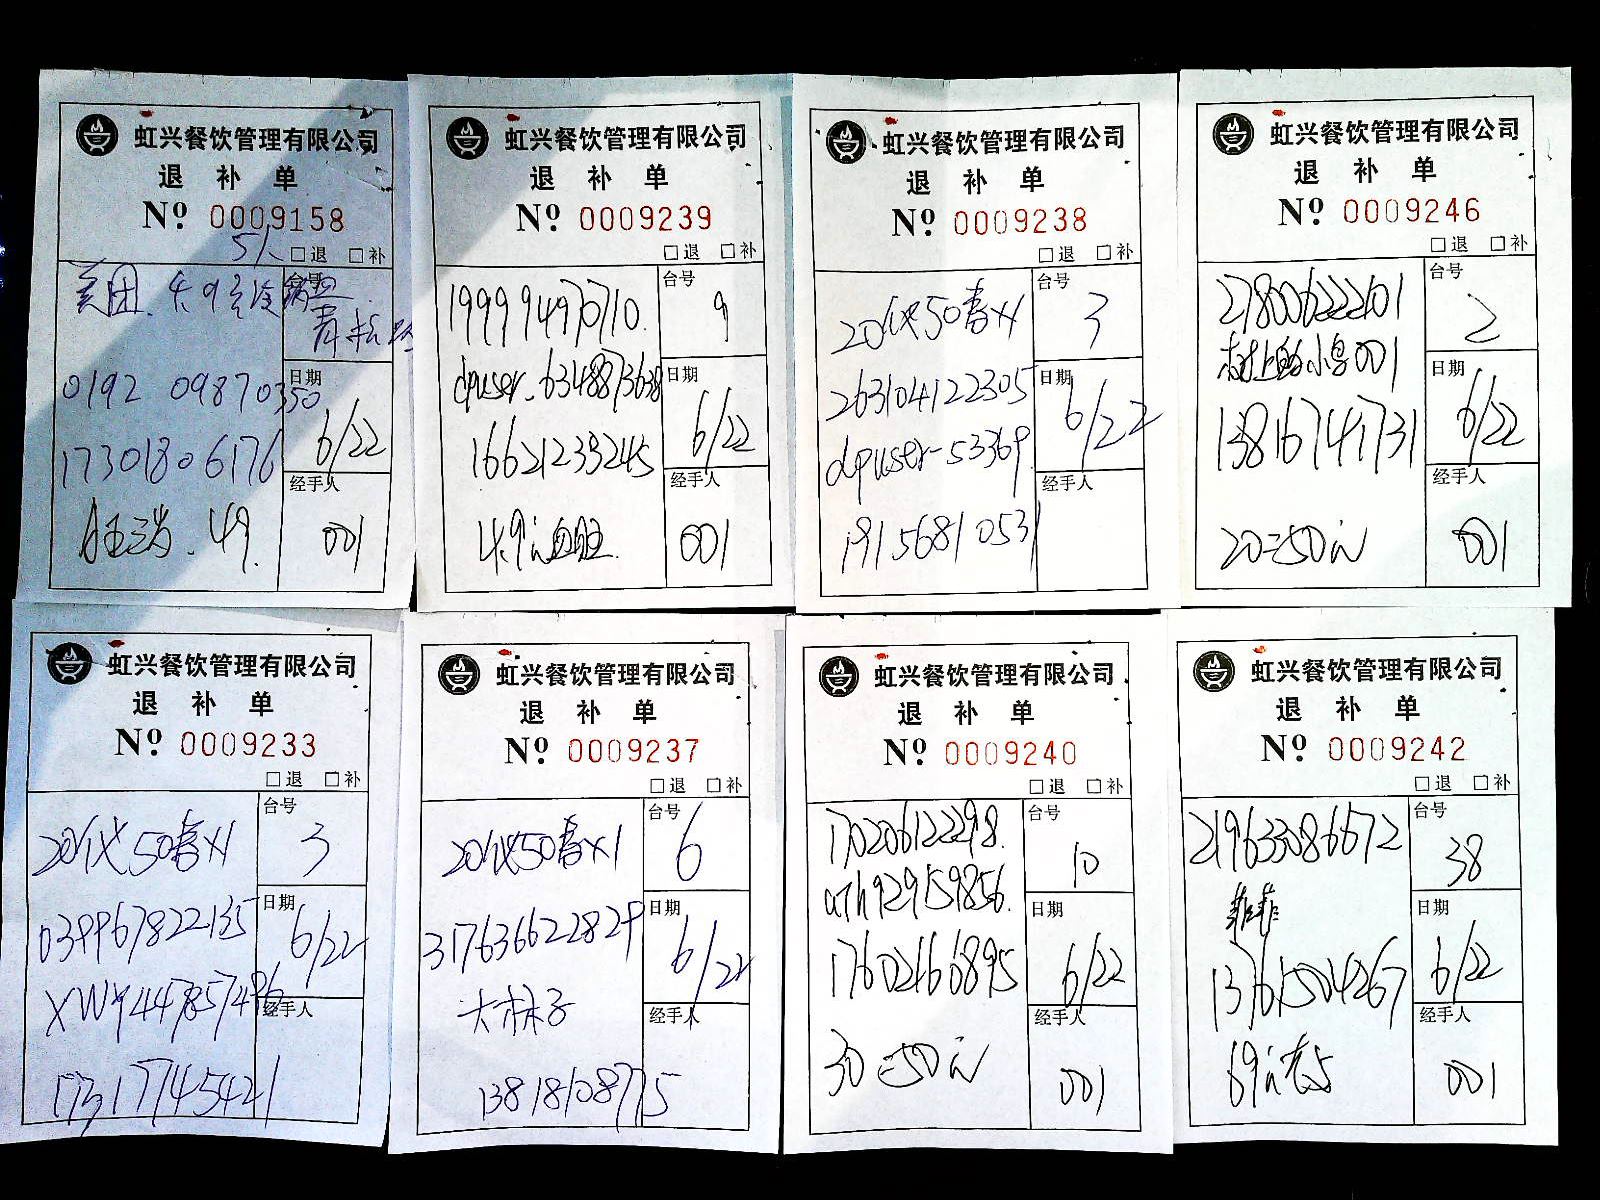 虹兴餐饮管理有限公司
退 补 单
Nº 0009158
5人 □退 □补
美团. 4.9元 台号
日期
0192 09870350
6/22
17301806176
经手人
49. 001
虹兴餐饮管理有限公司
退 补 单
Nº 0009239
□退 □补
台号
199994970710. 9
日期
dpuser-6348873638
16621239245 6/22
经手人
4.9元 001
虹兴餐饮管理有限公司
退 补 单
Nº 0009238
□退 □补
台号
20代50套×1 3
日期
263104122305 6/22
dpuser-53369
经手人
19156810531
虹兴餐饮管理有限公司
退 补 单
Nº 0009246
□退 □补
台号
278006222101 2
树上的小鸟001
日期
13816741731 6/22
经手人
20=50元 001
虹兴餐饮管理有限公司
退 补 单
Nº 0009233
□退 □补
台号
20代50套×1 3
日期
039967822135 6/22
XWY447857496
经手人
17317745421
虹兴餐饮管理有限公司
退 补 单
Nº 0009237
□退 □补
台号
20代50套×1 6
日期
317636622829 6/22
大林子
经手人
13818108775
虹兴餐饮管理有限公司
退 补 单
Nº 0009240
□退 □补
台号
170206122298. 10
日期
929159856.
17602166895 6/22
经手人
30=50元 001
虹兴餐饮管理有限公司
退 补 单
Nº 0009242
□退 □补
台号
219633086672 38
日期
菲菲
13761504267 6/22
经手人
69元 001